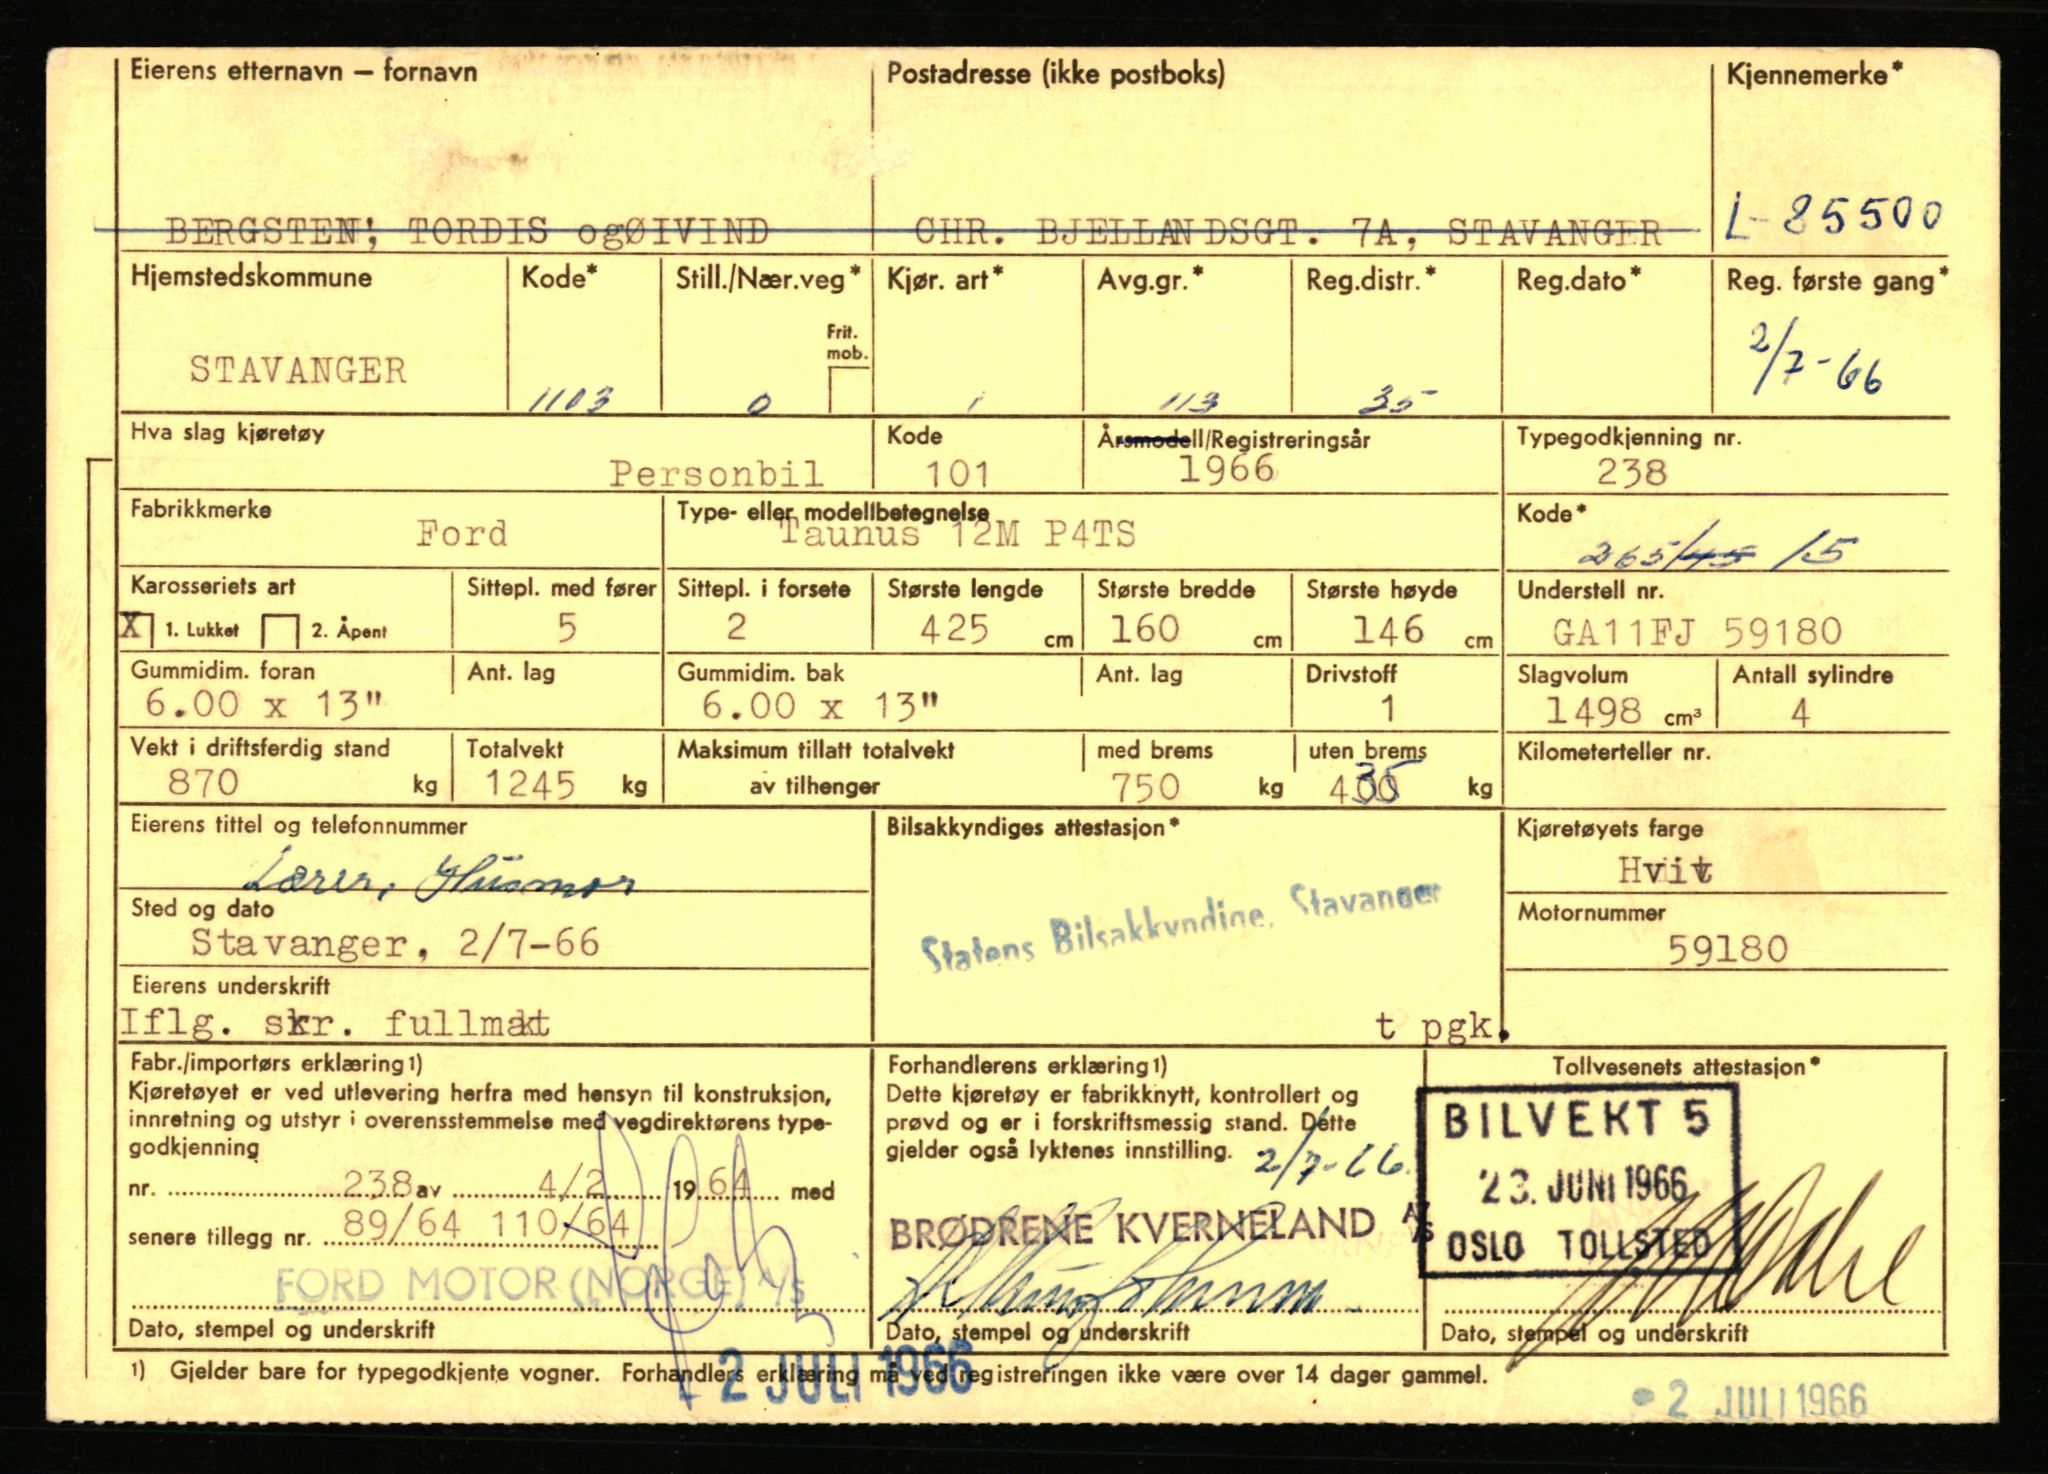 Eierens etternavn – fornavn Postadresse (ikke postboks) Kjennemerke*
BERGSTEN, TORDIS ogØIVIND CHR. BJELLANDSGT. 7A, STAVANGER L-85500
Hjemstedskommune Kode* Still./Nær.veg* Kjør. art* Avg.gr.* Reg.distr.* Reg.dato* Reg. første gang*
Frit.
mob.
STAVANGER 1103 0 1 113 35 2/7-66
Hva slag kjøretøy Kode Årsmodell/Registreringsår Typegodkjenning nr.
Personbil 101 1966 238
Fabrikkmerke Type- eller modellbetegnelse Kode*
Ford Taunus 12M P4TS 265/45 15
Karosseriets art Sittepl. med fører Sittepl. i forsete Største lengde Største bredde Største høyde Understell nr.
X 1. Lukket 2. Åpent 5 2 425 cm 160 cm 146 cm GA11FJ 59180
Gummidim. foran Ant. lag Gummidim. bak Ant. lag Drivstoff Slagvolum Antall sylindre
6.00 x 13" 6.00 x 13" 1 1498 cm³ 4
Vekt i driftsferdig stand Totalvekt Maksimum tillatt totalvekt med brems uten brems Kilometerteller nr.
870 kg 1245 kg av tilhenger 750 kg 435 kg
Eierens tittel og telefonnummer Bilsakkyndiges attestasjon* Kjøretøyets farge
Lærer, Husmor Hvit
Sted og dato Statens Bilsakkyndige, Stavanger Motornummer
Stavanger, 2/7-66 59180
Eierens underskrift
Iflg. skr. fullmakt t pgk.
Fabr./importørs erklæring 1) Forhandlerens erklæring 1) Tollvesenets attestasjon*
Kjøretøyet er ved utlevering herfra med hensyn til konstruksjon, Dette kjøretøy er fabrikknytt, kontrollert og
innretning og utstyr i overensstemmelse med vegdirektørens type- prøvd og er i forskriftsmessig stand. Dette BILVEKT 5
godkjenning gjelder også lyktenes innstilling. 2/7-66.
nr. 238 av 4/2 1964 med 23. JUNI 1966
senere tillegg nr. 89/64 110/64 BRØDRENE KVERNELAND A/S OSLO TOLLSTED
FORD MOTOR (NORGE) A/S
Dato, stempel og underskrift Dato, stempel og underskrift Dato, stempel og underskrift
1) Gjelder bare for typegodkjente vogner. Forhandlers erklæring må ved registreringen ikke være over 14 dager gammel.
2 JULI 1966 2 JULI 1966